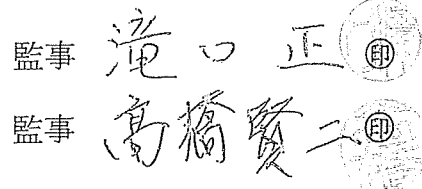 監事 滝口 正 ㊞
監事 高橋賢二 ㊞